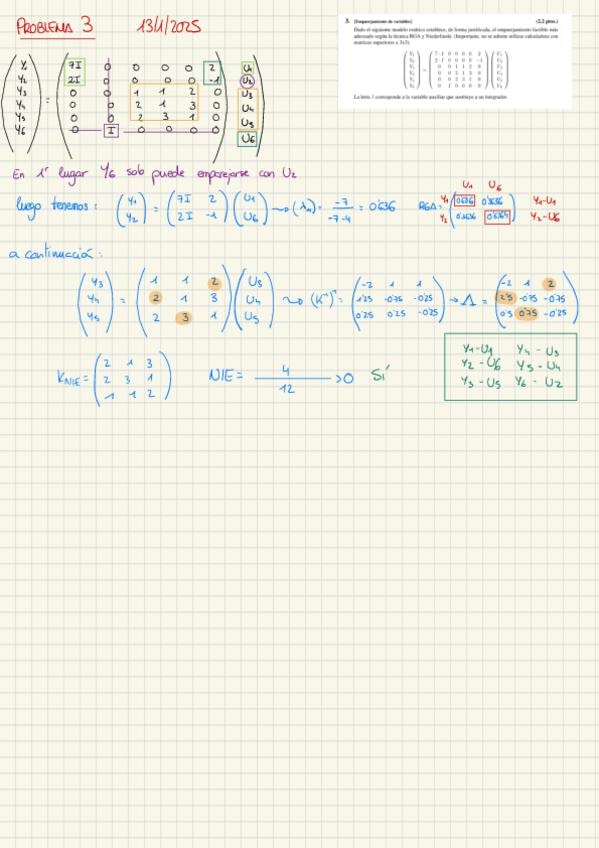 PROBLEMA 3 13/1/2025
3. [Emparejamiento de variables] (2.2 ptos.)
Dado el siguiente modelo estático establece, de forma justificada, el emparejamiento factible más
adecuado según la técnica RGA y Niederlinski. (Importante, no se admite utilizar calculadora con
matrices superiores a 3x3).
La letra I corresponde a la variable auxiliar que sustituye a un integrador.
Y1 7I 0 0 0 0 2 U1
Y2 2I 0 0 0 0 -1 U2
Y3 0 0 1 1 2 0 U3
Y4 = 0 0 2 1 3 0 U4
Y5 0 0 2 3 1 0 U5
Y6 0 I 0 0 0 0 U6
En 1er lugar Y6 solo puede emparejarse con U2
luego tenemos: (Y1 Y2) = (7I 2 2I -1) (U1 U6) ⤳ (λ11) = -7 / -7-4 = 0'636 RGA = U1 U6 Y1 0'636 0'3636 Y1-U1
Y2 0'3636 0'6364 Y2-U6
a continuación:
Y3 1 1 2 U3 -2 1 1 -2 1 2
Y4 = 2 1 3 U4 ⤳ (K⁻¹)ᵀ = 1'25 -0'75 -0'25 → Λ = 2'5 -0'75 -0'75
Y5 2 3 1 U5 0'25 0'25 -0'25 0'5 0'75 -0'25
KNIE = 2 1 3
2 3 1
1 1 2
NIE = 4 / 12 >0 SÍ
Y1-U1 Y4-U3
Y2-U6 Y5-U4
Y3-U5 Y6-U2